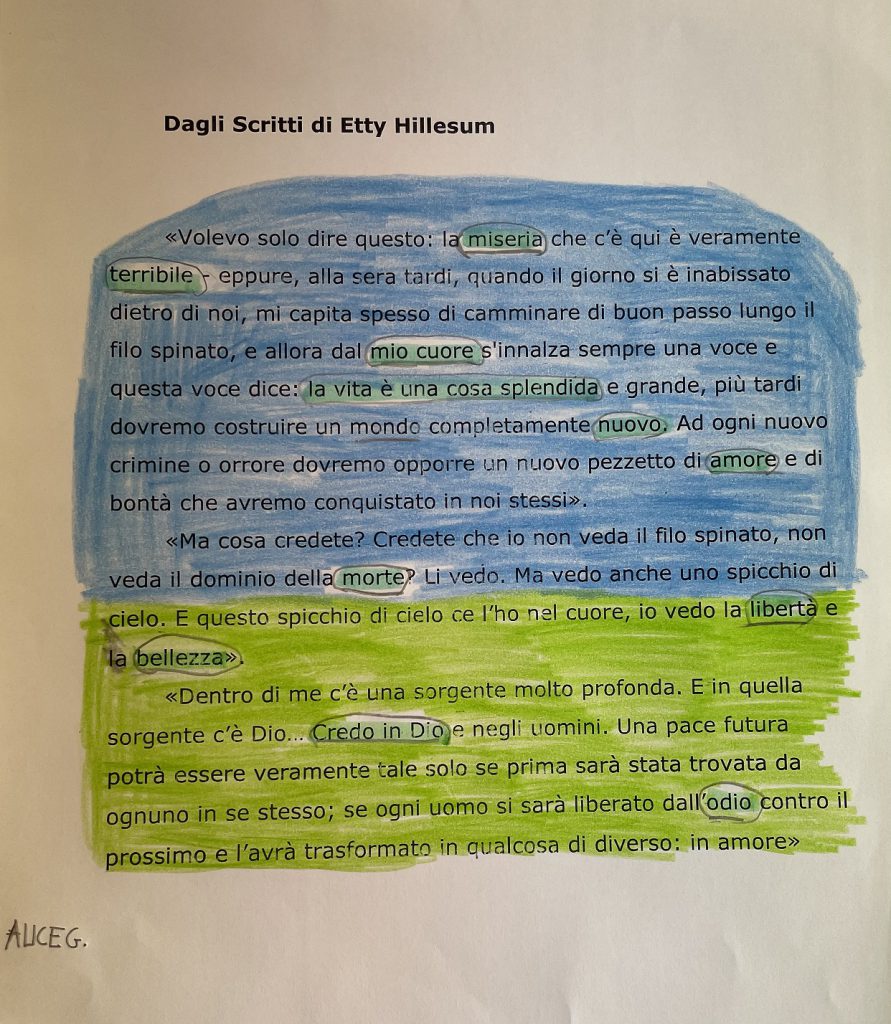 Dagli Scritti di Etty Hillesum
«Volevo solo dire questo: la miseria che c’è qui è veramente
terribile - eppure, alla sera tardi, quando il giorno si è inabissato
dietro di noi, mi capita spesso di camminare di buon passo lungo il
filo spinato, e allora dal mio cuore s'innalza sempre una voce e
questa voce dice: la vita è una cosa splendida e grande, più tardi
dovremo costruire un mondo completamente nuovo. Ad ogni nuovo
crimine o orrore dovremo opporre un nuovo pezzetto di amore e di
bontà che avremo conquistato in noi stessi».
«Ma cosa credete? Credete che io non veda il filo spinato, non
veda il dominio della morte? Li vedo. Ma vedo anche uno spicchio di
cielo. E questo spicchio di cielo ce l’ho nel cuore, io vedo la libertà e
la bellezza».
«Dentro di me c’è una sorgente molto profonda. E in quella
sorgente c’è Dio... Credo in Dio e negli uomini. Una pace futura
potrà essere veramente tale solo se prima sarà stata trovata da
ognuno in se stesso; se ogni uomo si sarà liberato dall’odio contro il
prossimo e l’avrà trasformato in qualcosa di diverso: in amore»
ALICE G.